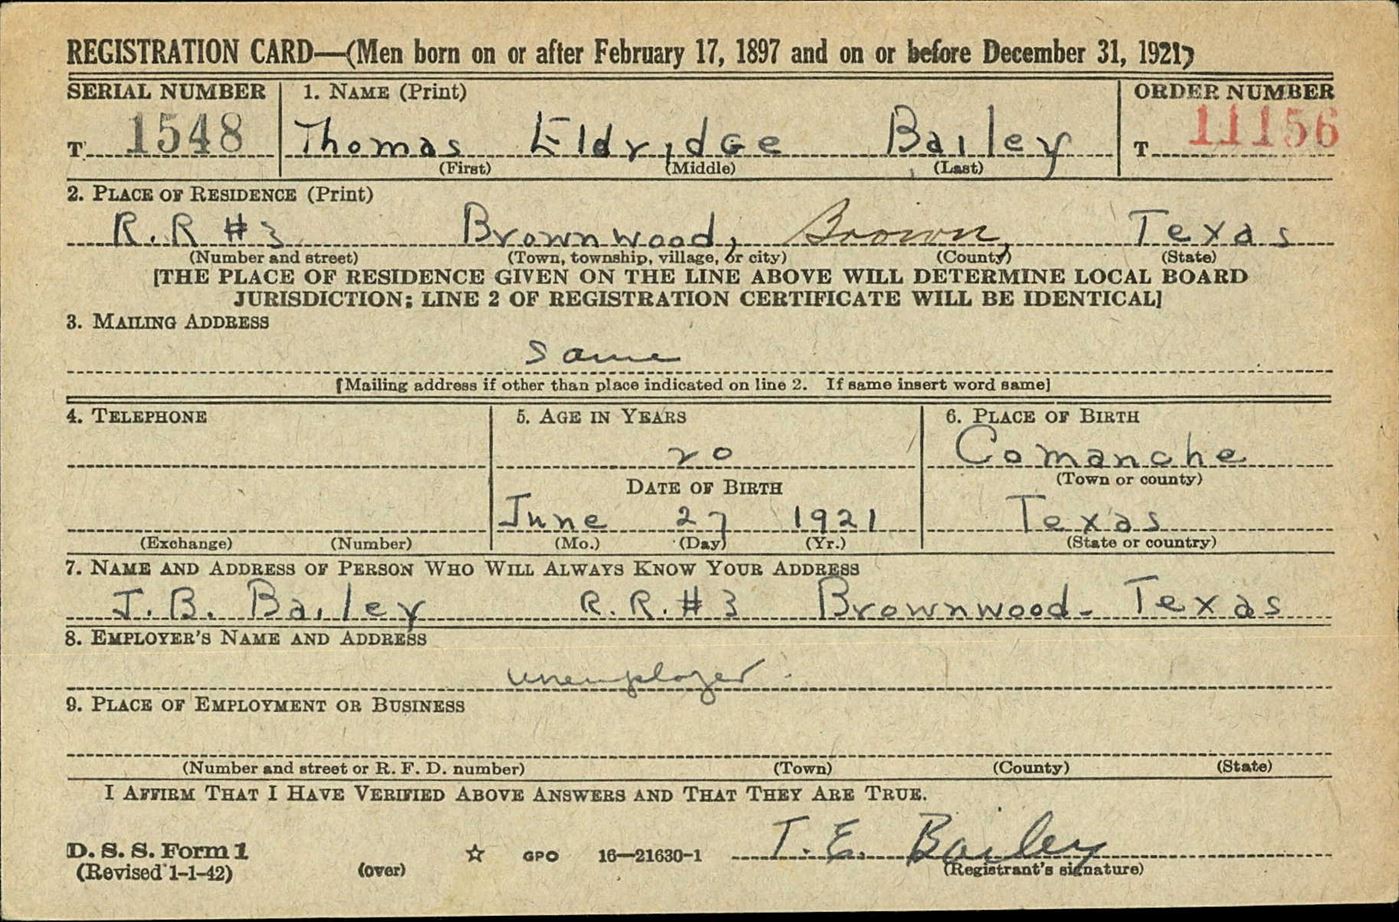 REGISTRATION CARD—(Men born on or after February 17, 1897 and on or before December 31, 1921)
SERIAL NUMBER 1. NAME (Print) ORDER NUMBER
T 1548 Thomas Eldridge Bailey T 11156
(First) (Middle) (Last)
2. PLACE OF RESIDENCE (Print)
R.R #3 Brownwood, Brown, Texas
(Number and street) (Town, township, village, or city) (County) (State)
[THE PLACE OF RESIDENCE GIVEN ON THE LINE ABOVE WILL DETERMINE LOCAL BOARD
JURISDICTION; LINE 2 OF REGISTRATION CERTIFICATE WILL BE IDENTICAL]
3. MAILING ADDRESS
Same
[Mailing address if other than place indicated on line 2. If same insert word same]
4. TELEPHONE 5. AGE IN YEARS 6. PLACE OF BIRTH
20 Comanche
(Town or county)
DATE OF BIRTH
June 27 1921 Texas
(Exchange) (Number) (Mo.) (Day) (Yr.) (State or country)
7. NAME AND ADDRESS OF PERSON WHO WILL ALWAYS KNOW YOUR ADDRESS
J. B. Bailey R.R. #3 Brownwood - Texas
8. EMPLOYER'S NAME AND ADDRESS
unemployed
9. PLACE OF EMPLOYMENT OR BUSINESS
(Number and street or R. F. D. number) (Town) (County) (State)
I AFFIRM THAT I HAVE VERIFIED ABOVE ANSWERS AND THAT THEY ARE TRUE.
D. S. S. Form 1
(Revised 1-1-42) (over) ☆ GPO 16—21630-1 T. E. Bailey
(Registrant's signature)